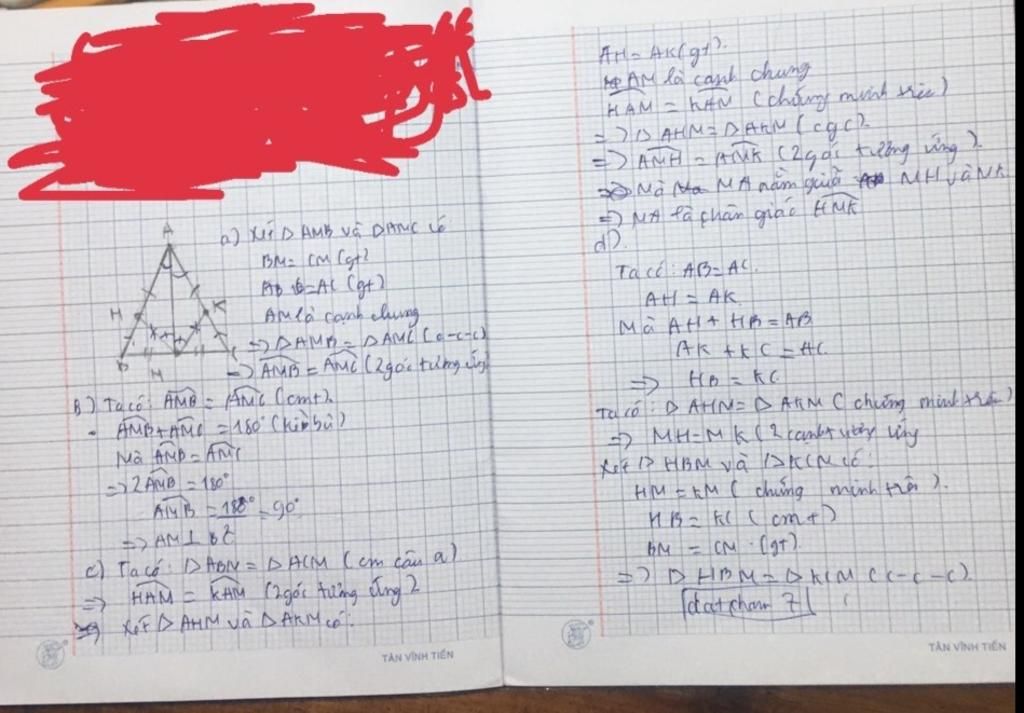 A
H
K
B
M
C
a) Xét △AMB và △AMC có
BM = CM (gt)
AB = AC (gt)
AM là cạnh chung
=> △AMB = △AMC (c-c-c)
=> AMB = AMC (2 góc tương ứng)
B) Ta có: AMB = AMC (cmt).
AMB + AMC = 180° (kề bù)
Mà AMB = AMC
=> 2AMB = 180°
AMB = 180°/2 = 90°
=> AM ⊥ BC
c) Ta có: △ABM = △ACM (cm câu a)
=> HAM = KAM (2 góc tương ứng)
Xét △AHM và △AKM có:
TÂN VĨNH TIẾN
AH = AK (gt).
AM là cạnh chung
HAM = KAM (chứng minh trên)
=> △AHM = △AKM (cgc).
=> AMH = AMK (2 góc tương ứng).
Mà MA nằm giữa MH và MK
=> MA là phân giác HMK
d).
Ta có: AB = AC.
AH = AK.
Mà AH + HB = AB
AK + KC = AC.
=> HB = KC.
Ta có: △AHM = △AKM (chứng minh trên)
=> MH = MK (2 cạnh tương ứng
Xét △HBM và △KCM có:
HM = KM (chứng minh trên).
HB = KC (cmt)
BM = CM. (gt).
=> △HBM = △KCM (c-c-c).
TÂN VĨNH TIẾN